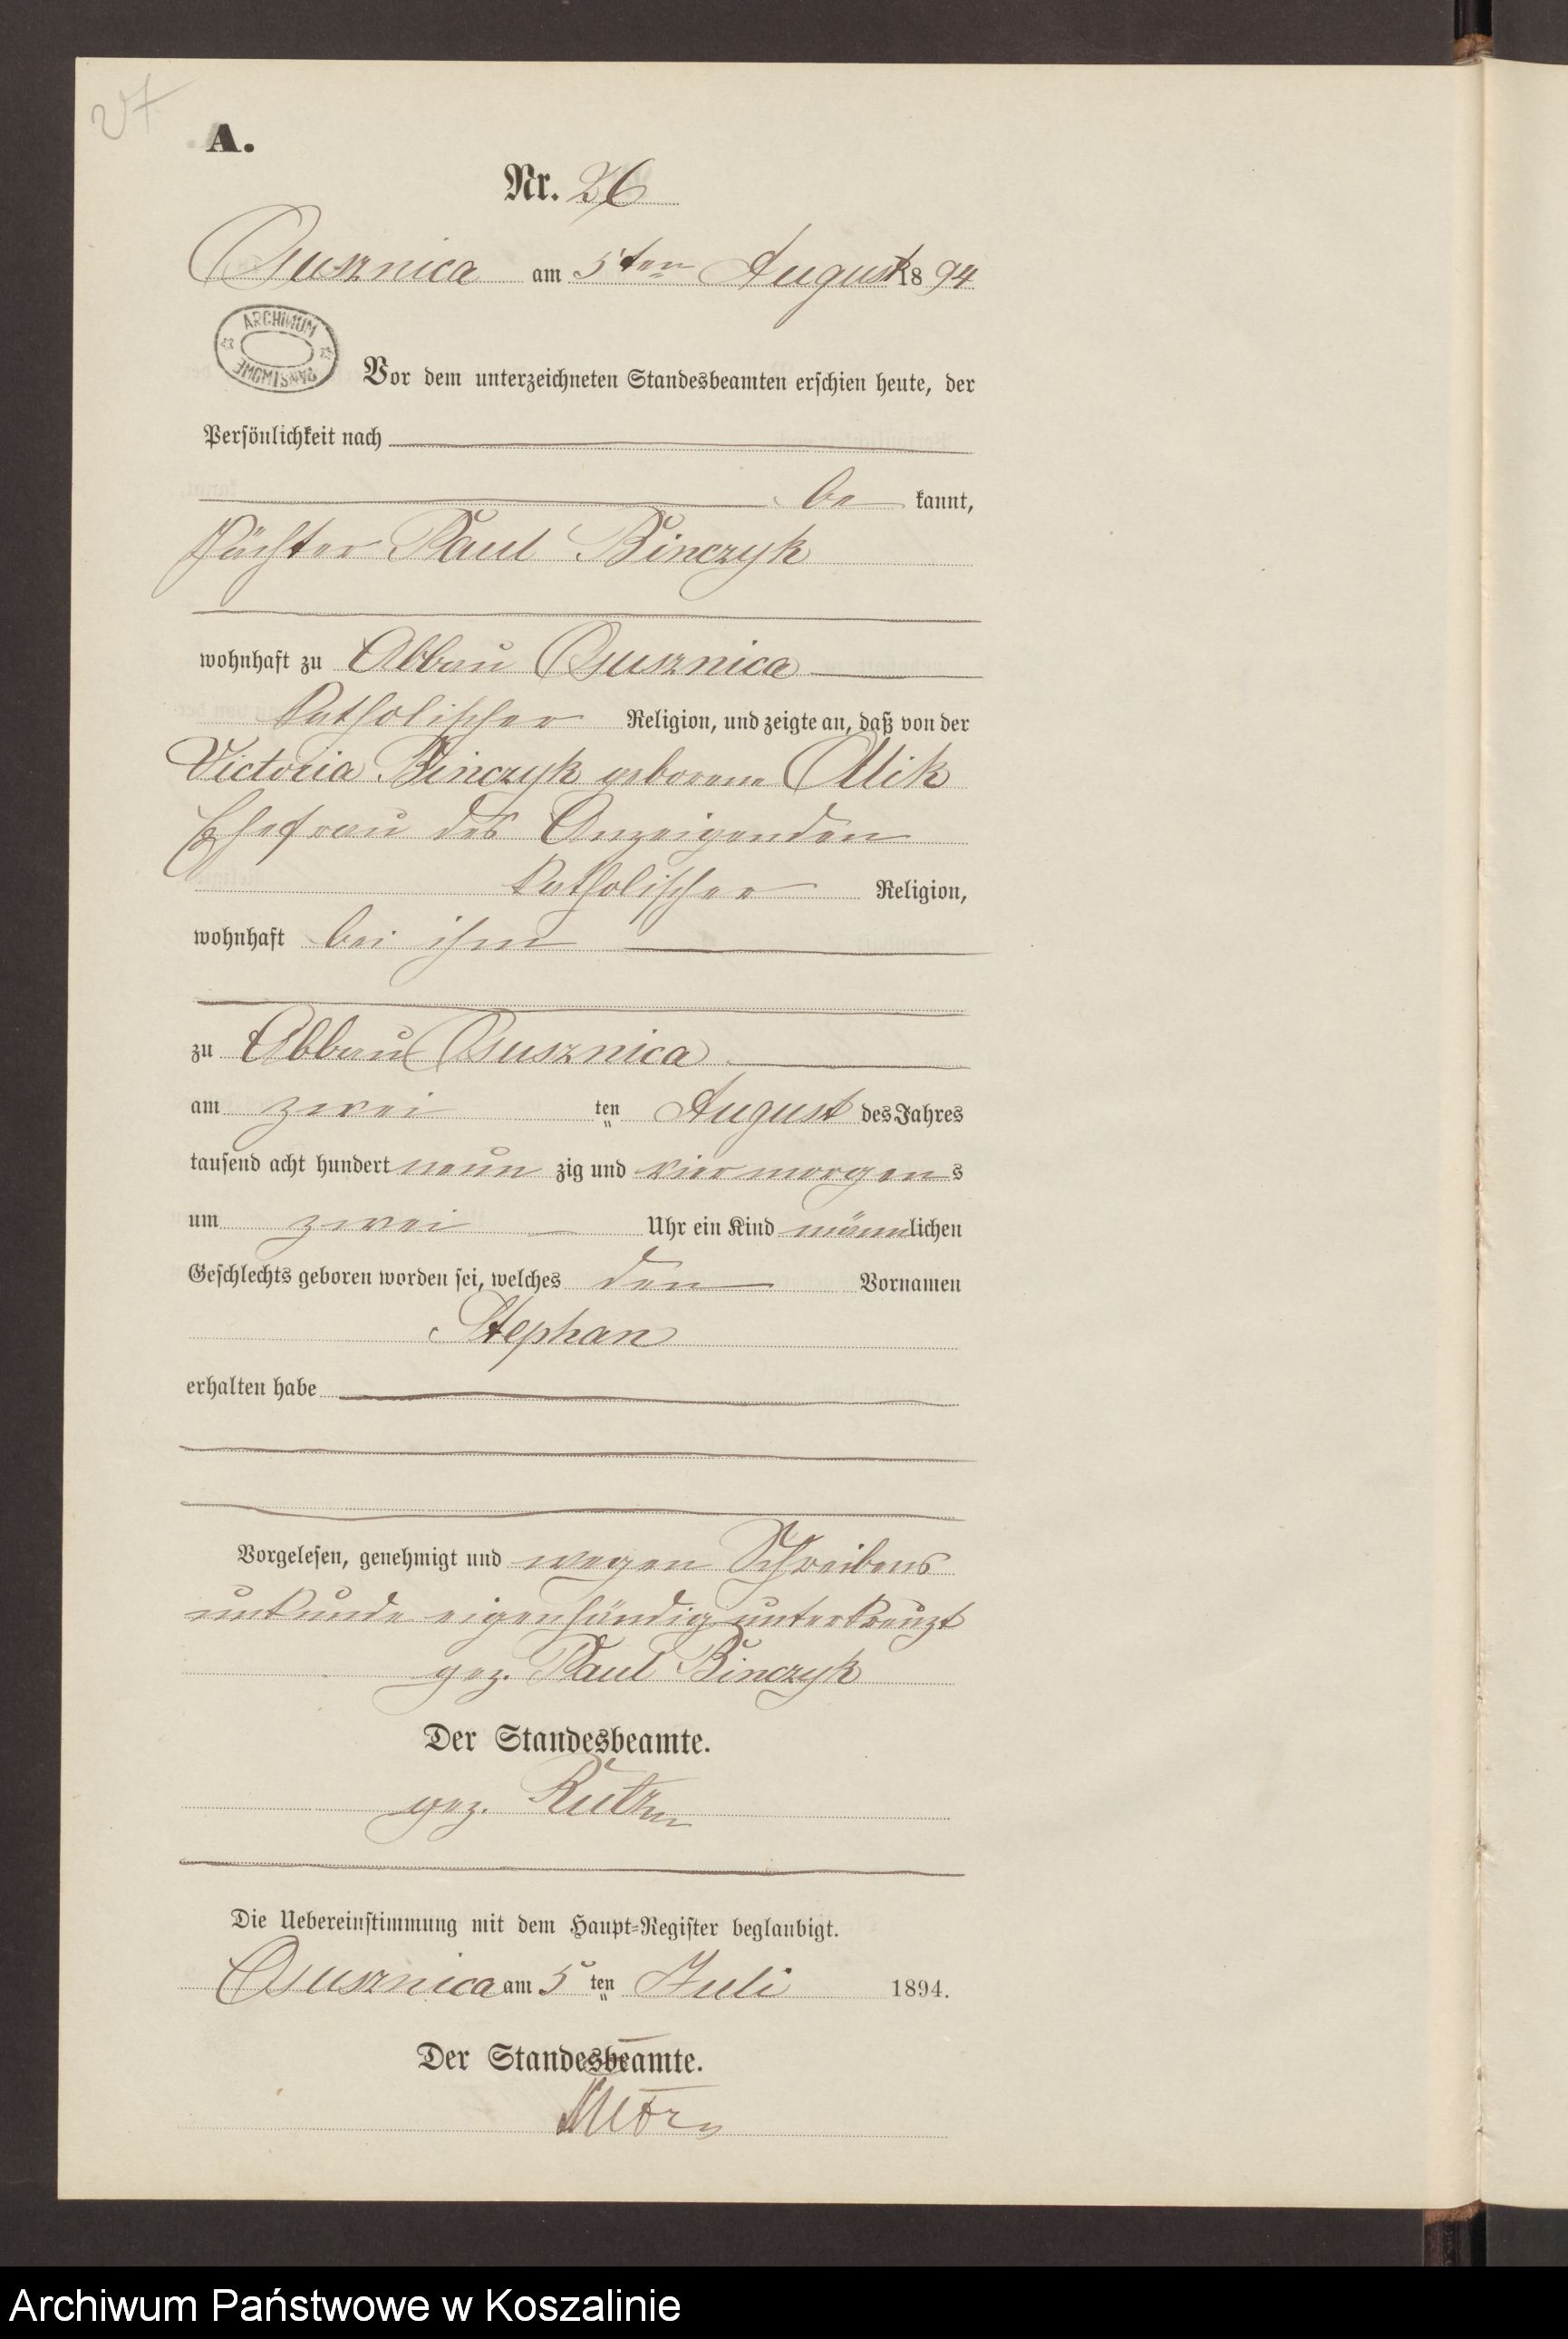 27
A.
Nr. 26
Ossusznica am 5ten August 1894
ARCHIWUM PAŃSTWOWE
Vor dem unterzeichneten Standesbeamten erschien heute, der
Persönlichkeit nach
be kannt,
Pächter Paul Binczyk
wohnhaft zu Abbau Ossusznica
katholischer Religion, und zeigte an, daß von der
Victoria Binczyk geborene
Ehefrau des Anzeigenden
katholischer Religion,
wohnhaft bei ihm
zu Abbau Ossusznica
am zwei ten August des Jahres
tausend acht hundert neun zig und vier morgens
um zwei Uhr ein Kind männlichen
Geschlechts geboren worden sei, welches den Vornamen
Stephan
erhalten habe
Vorgelesen, genehmigt und wegen Schreibens
unkunde eigenhändig unterkreuzt
gez. Paul Binczyk
Der Standesbeamte.
gez.
Die Uebereinstimmung mit dem Haupt-Register beglaubigt.
Ossusznica am 5 ten Juli 1894.
Der Standesbeamte.
Archiwum Państwowe w Koszalinie